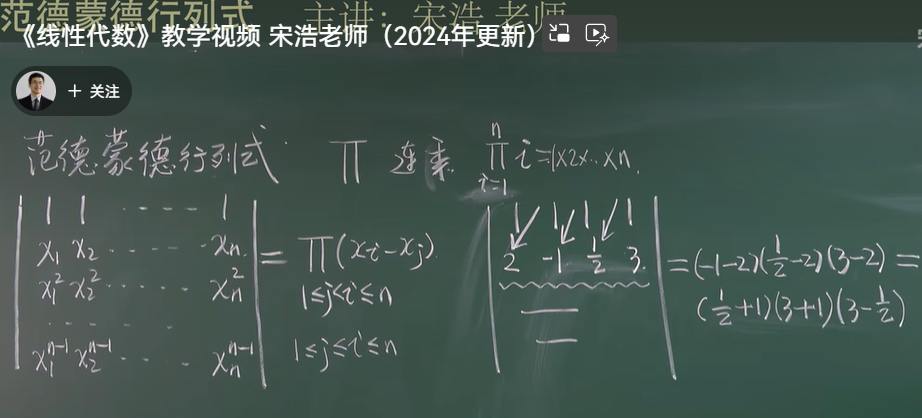 范德蒙德行列式 主讲：宋浩 老师
《线性代数》教学视频 宋浩老师（2024年更新）
+ 关注
范德蒙德行列式 ∏ 连乘 ∏_{i=1}^{n} i=1×2×...×n.
1 1 ····· 1
x₁ x₂ ····· xₙ
x₁² x₂² ····· xₙ²
·····
x₁ⁿ⁻¹ x₂ⁿ⁻¹ ····· xₙⁿ⁻¹
= ∏(xᵢ-xⱼ).
1≤j<i≤n
1≤j≤i≤n
1 1 1 1
2 -1 1/2 3.
=(-1-2)(1/2-2)(3-2)=
(1/2+1)(3+1)(3-1/2)